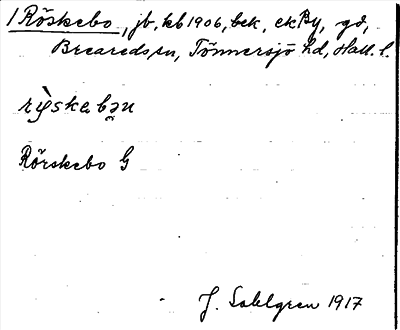 1 Röskebo, jb, kb 1906, bek, ekPy, gd,
Breareds sn, Tönnersjö hd, Hall. l.
rỳskabən
Rörskebo G
J. Sahlgren 1917